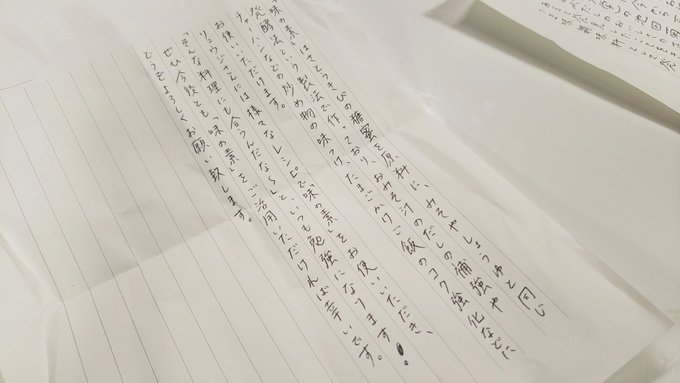 「味の素」はさとうきびの糖蜜を原料に、みそやしょうゆと同じ
発酵法という製法で作っており、おみそ汁のだしの補強や
チャーハンなどの炒め物の味つけ、たまごかけご飯のコク強化などに
お使いいただけます。
リュウジさんには様々なレシピで「味の素」をお使いいただき、
「そんな料理にも合うんだな〜」といつも勉強になります!
ぜひ今後とも「味の素」をご活用いただければ幸いです。
どうぞよろしくお願い致します。